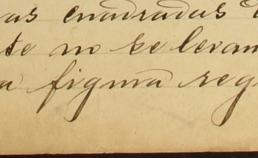 as cuadradas
te no se levan
a figma reg